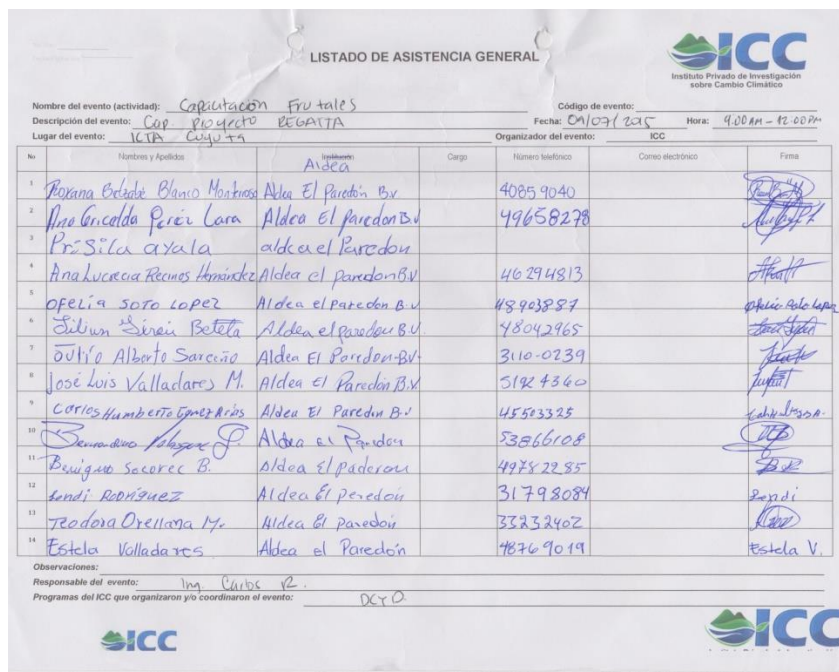 LISTADO DE ASISTENCIA GENERAL
ICC
Instituto Privado de Investigación
sobre Cambio Climático
Nombre del evento (actividad): Capacitación Frutales Código de evento:
Descripción del evento: Cap. Proyecto REGATTA Fecha: 09/07/2015 Hora: 9:00 AM - 12:00 PM
Lugar del evento: ICTA Cuyuta Organizador del evento: ICC
No Nombres y Apellidos Institución Aldea Cargo Número telefónico Correo electrónico Firma
1 Roxana Betzabe Blanco Monterroso Aldea El Paredón B.V 40859040
2 Ana Gricelda Perez Lara Aldea El paredon B.V 49658278
3 Prisila ayala aldea el Paredon
4 Ana Lucrecia Recinos Hernández Aldea el paredon B.V 46294813
5 OFELIA SOTO LOPEZ Aldea el paredon B.V 48903887 Ofelia Soto Lopez
6 Beteta Aldea el paredon B.V. 48042965
7 Julio Alberto Sarceño Aldea El Paredon-BV- 3110-0239
8 José Luis Valladares M. Aldea El Paredón B.V 51924360
9 Carlos Humberto Aldea El Paredon B.V 45503325
10 Aldea el Paredon 53866108
11 Benigno Socorec B. Aldea El Paderon 49782285
12 Rodriguez Aldea El Peredon 31798084
13 Teodora Orellana M. Aldea El paredon 33232402
14 Estela Valladares Aldea el Paredón 48769019 Estela V.
Observaciones:
Responsable del evento: Ing. Carlos R.
Programas del ICC que organizaron y/o coordinaron el evento: DCYD
ICC
ICC